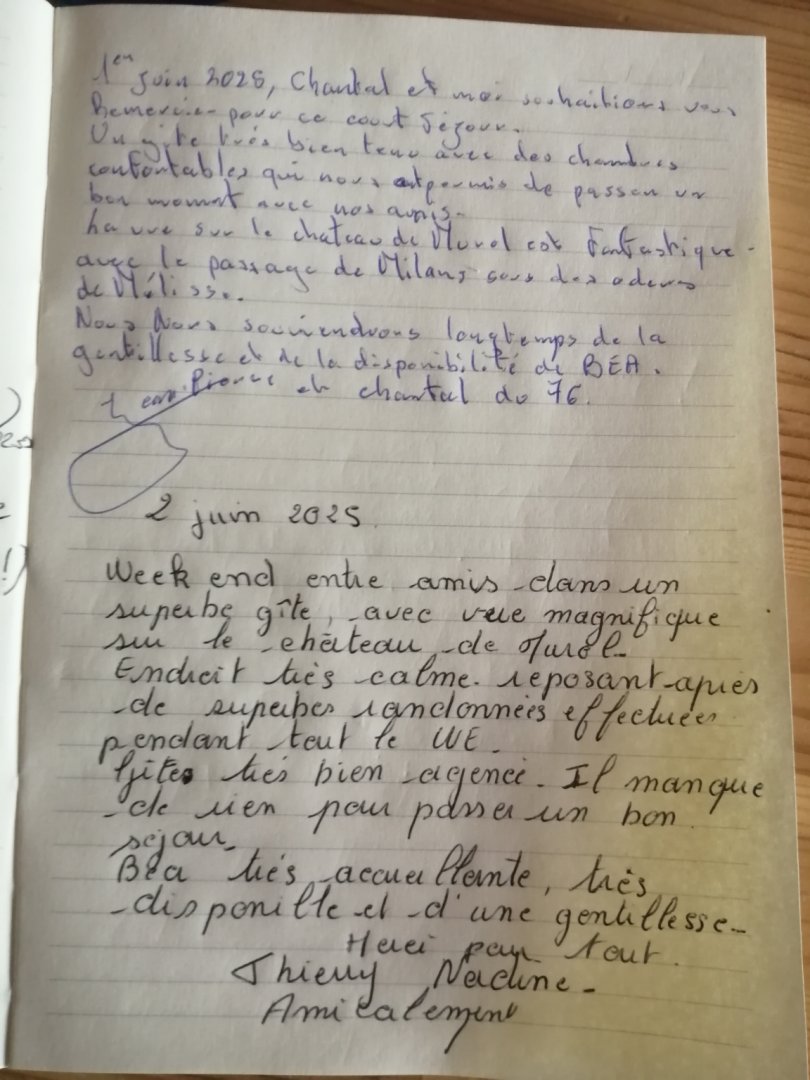 1er juin 2025, Chantal et moi souhaitions vous
Remercier pour ce court séjour.
Un gîte très bien tenu avec des chambres
confortables qui nous ont permis de passer un
bon moment avec nos amis.
La vue sur le chateau de Murol est fantastique
avec le passage de Milans sous des odeurs
de Mélisse.
Nous Nous souviendrons longtemps de la
gentillesse et de la disponibilité de BÉA.
Jean Pierre et chantal du 76.
2 juin 2025
Week end entre amis dans un
superbe gîte, avec vue magnifique
sur le château de Murol
Endroit très calme. reposant après
de superbes randonnées effectuées
pendant tout le WE.
Gîtes très bien agencé. Il manque
de rien pour passer un bon
séjour
Béa très accueillante, très
disponible et d'une gentillesse
Merci pour tout.
Thierry Nadine
Amicalement